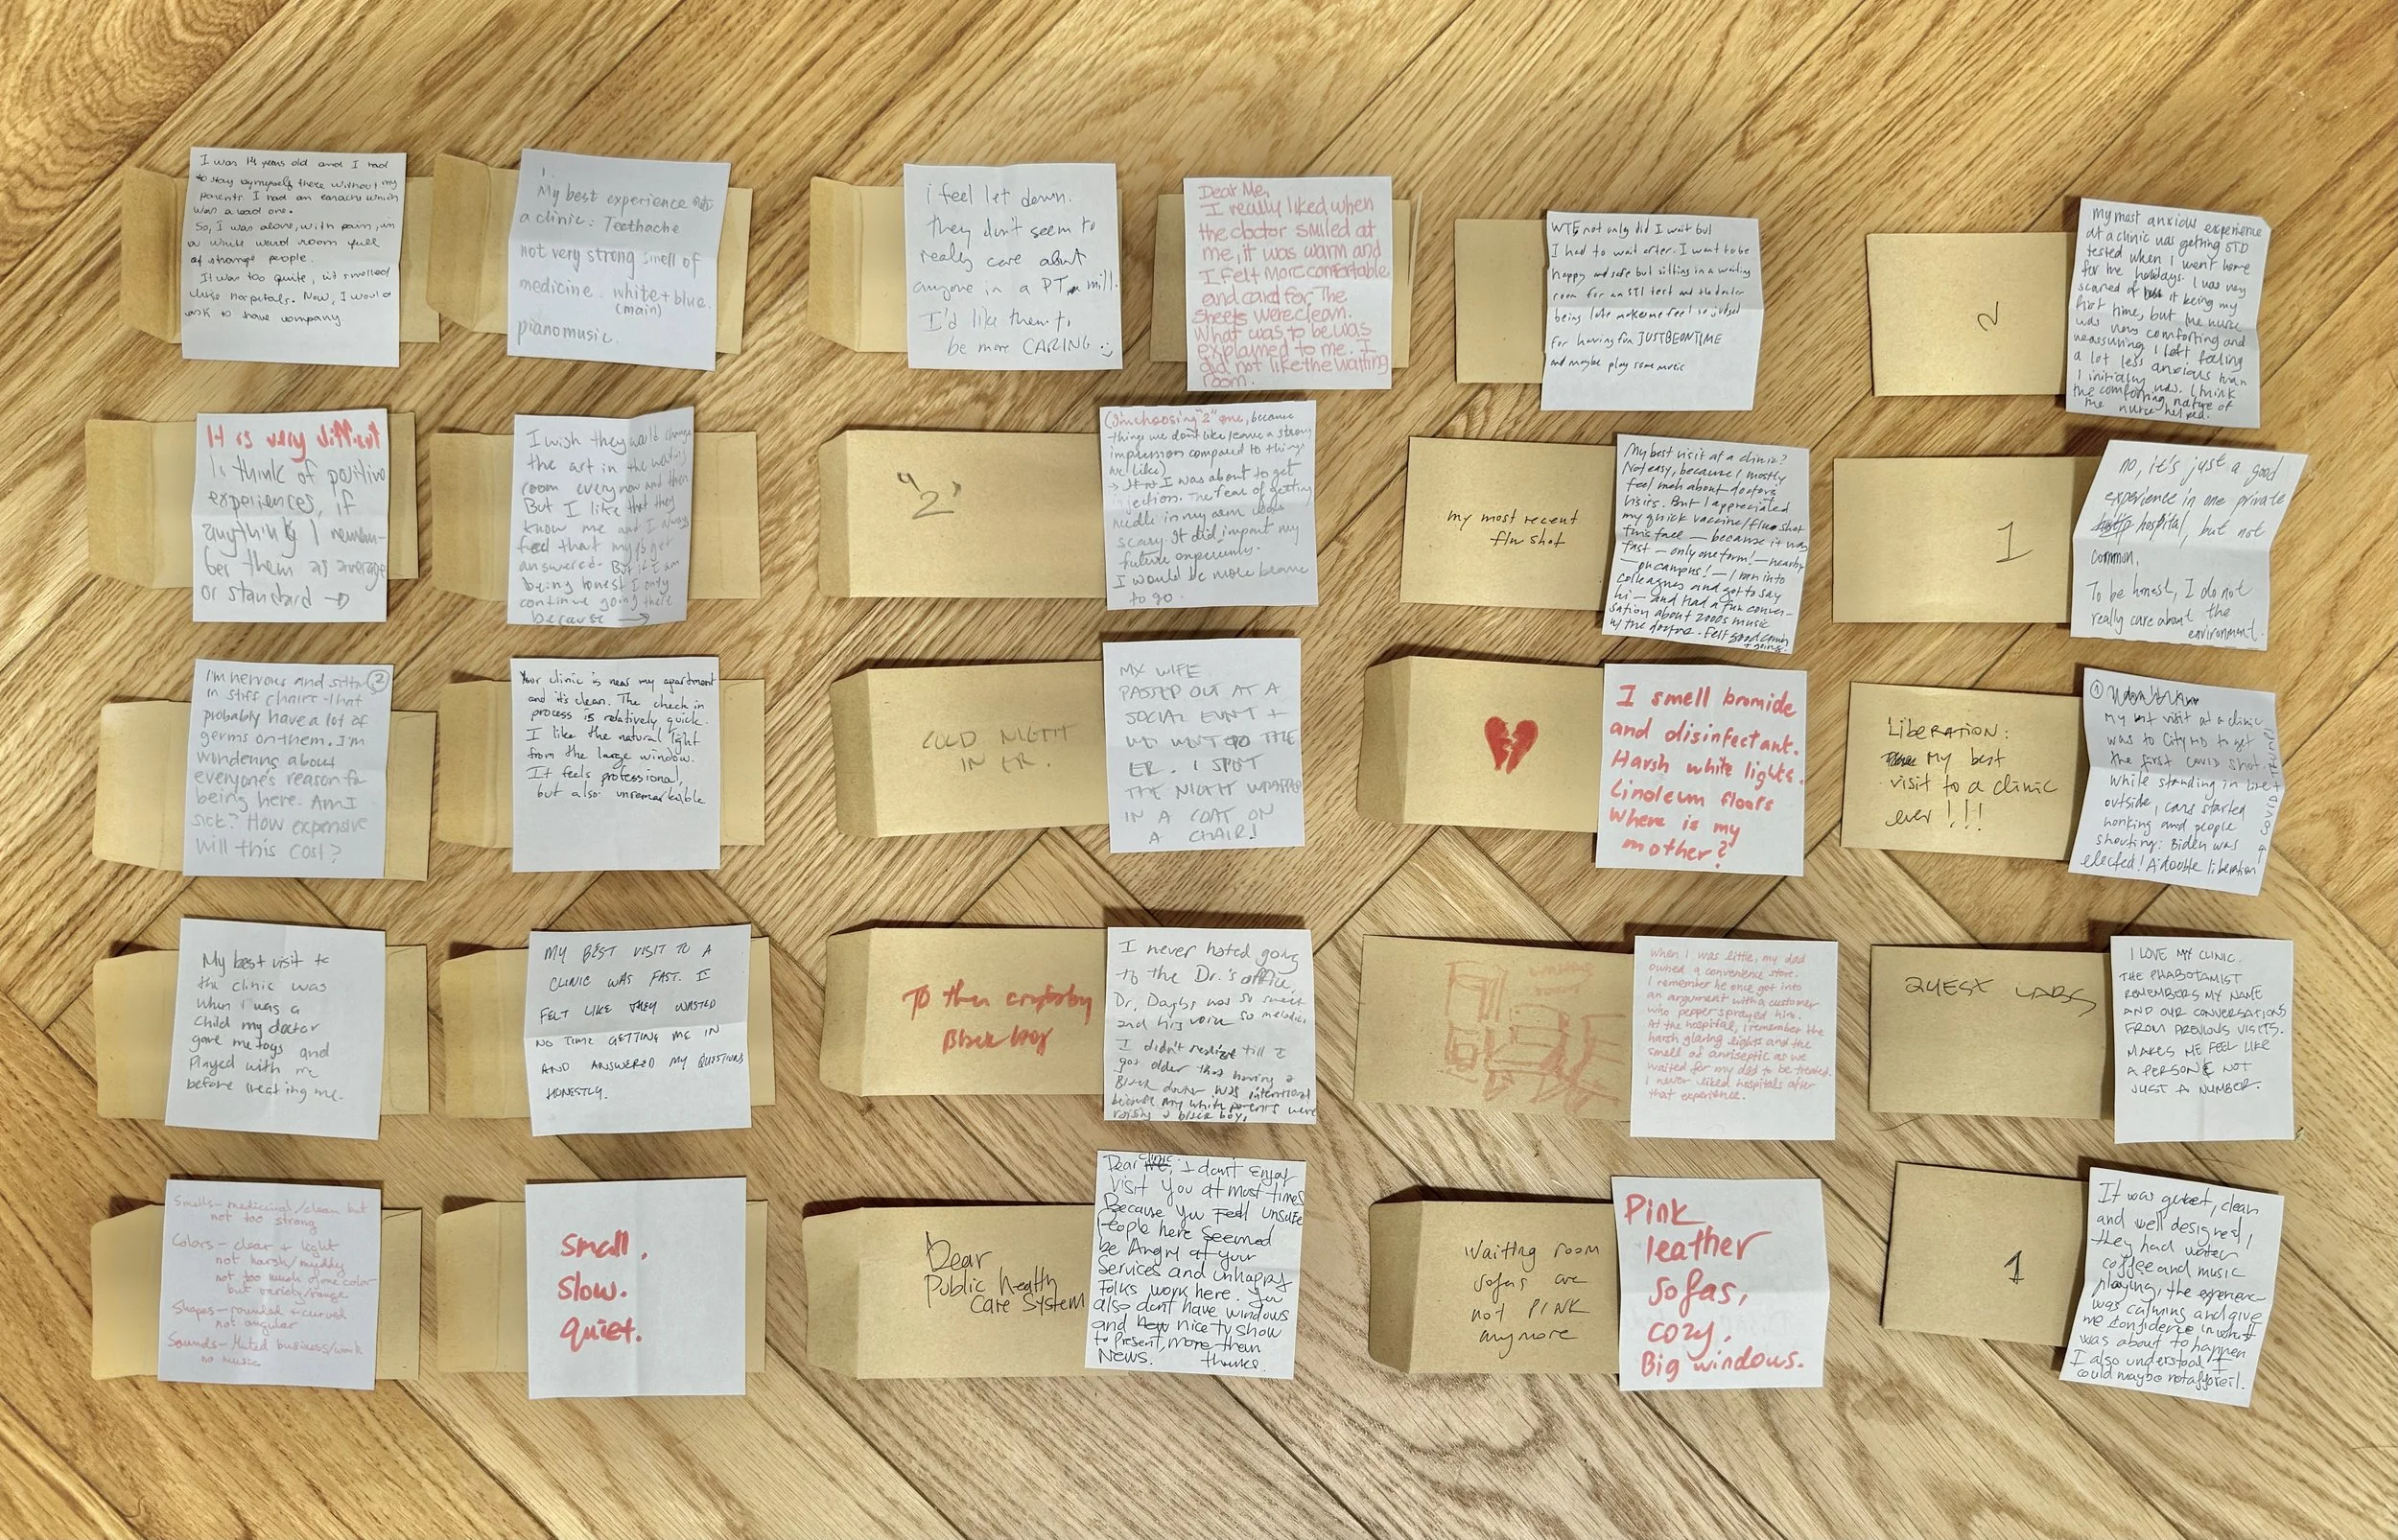 I was 14 years old and I had
to stay bymyself there without my
parents. I had an earache which
was a bad one.
So, I was alone, with pain, in
a white ward room full
of strange people.
It was too quite, it smelled
like hospitals. Now, I would
ask to have company
My best experience
a clinic: Teethache
not very strong smell of
medicine. white + blue.
(main)
piano music.
i feel let down.
they don't seem to
really care about
anyone in a PT mill.
I'd like them to
be more CARING :)
Dear Me,
I really liked when
the doctor smiled at
me, it was warm and
I felt more comfortable
and card for. The
sheets were clean.
What was to be was
explained to me. I
did not like the waiting
room.
WTF not only did I wait but
I had to wait after. I want to be
happy and safe but sitting in a waiting
room for an STI test and the doctor
being late makes me feel so judged
for having fun JUST BE ON TIME
and maybe play some music
2
My most anxious experience
at a clinic was getting STD
tested when I went home
for the holidays. I was very
scared of it being my
first time, but the nurse
was very comforting and
reassuring. I left feeling
a lot less anxious than
I initially was. I think
the comforting nature of
the nurse helped.
It is very difficult
to think of positive
experiences, if
anything I remem-
ber them as average
or standard →
I wish they would change
the art in the waiting
room every now and then
But I like that they
know me and I always
feel that my ?s get
answered. But if I am
being honest I only
continue going there
because →
"2"
(I'm choosing "2" one, because
things we don't like leave a strong
impression compared to things
we like)
→ I was about to get
injection. The fear of getting
needle in my arm was
scary. It did impact my
future experiences.
I would be more brave
to go.
my most recent
flu shot
My best visit at a clinic?
Not easy, because I mostly
feel meh about doctors'
visits. But I appreciated
my quick vaccine/flu shot
this fall — because it was
fast — only one form! — nearby
— on campus! — I ran into
colleagues and got to say
hi — and had a fun conver-
sation about 2000s music
w/ the doctor. Felt good coming
+ going.
1
no, it's just a good
experience in one private
hospital, but not
common.
To be honest, I do not
really care about the
environment.
I'm nervous and sitting (2)
in stiff chairs that
probably have a lot of
germs on them. I'm
wondering about
everyone's reason for
being here. Am I
sick? How expensive
will this cost?
Your clinic is near my apartment
and its clean. The check in
process is relatively quick.
I like the natural light
from the large window.
It feels professional,
but also unremarkable
COLD NIGHT
IN ER.
MY WIFE
PASSED OUT AT A
SOCIAL EVNT +
WE WENT TO THE
ER. I SPENT
THE NIGHT WRAPPED
IN A COAT ON
A CHAIR!
I smell bromide
and disinfectant.
Harsh white lights.
Linoleum floors
Where is my
mother?
LIBERATION:
My best
visit to a clinic
ever!!!
①
My best visit at a clinic
was to City MD to get
the first covid shot.
While standing in line
outside, cars started
honking and people
shouting: Biden was
elected! A double liberation
COVID + TRUMP!
My best visit to
the clinic was
when I was a
child my doctor
gave me toys and
played with me
before treating me.
MY BEST VISIT TO A
CLINIC WAS FAST. I
FELT LIKE THEY WASTED
NO TIME GETTING ME IN
AND ANSWERED MY QUESTIONS
HONESTLY.
To the crybaby
Black boy
I never hated going
to the Dr.'s office,
Dr. was so sweet
and his voice so melodic
I didn't realize till I
got older that having a
Black doctor was intentional
because my white parents were
raising a black boy.
waiting
room
When I was little, my dad
owned a convenience store.
I remember he once got into
an argument with a customer
who pepper sprayed him.
At the hospital, I remember the
harsh glaring lights and the
smell of antiseptic as we
waited for my dad to be treated.
I never liked hospitals after
that experience.
QUEST LABS
I LOVE MY CLINIC.
THE PHABOTAMIST
REMEMBERS MY NAME
AND OUR CONVERSATIONS
FROM PREVIOUS VISITS.
MAKES ME FEEL LIKE
A PERSON & NOT
JUST A NUMBER.
Smells – medicinal/clean but
not too strong
Colors – clear + light
not harsh/muddy
not too much of one color
but variety/range
Shapes – rounded + curved
not angular
Sounds – Muted business/work
no music
Small.
Slow.
quiet.
Dear
Public health
Care System
Dear clinic, I don't enjoy
visit you at most times
Because you feel unsafe
People here seemed
be Angry at your
services and unhappy
folks work here. You
also dont have windows
and nice tv show
to present, more than
News. thanks.
Waiting room
sofas are
not PINK
anymore
Pink
leather
sofas,
cozy.
Big windows.
1
It was quiet, clean
and well designed,
they had water
coffee and music
playing, the experience
was calming and give
me confidence in what
was about to happen
I also understood I
could maybe not afford it.